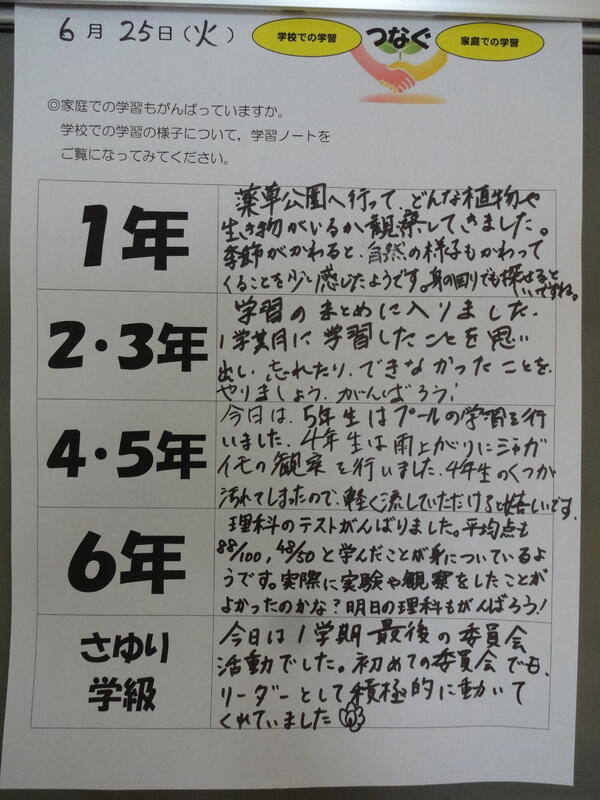 6月25日(火)
学校での学習
つなぐ
家庭での学習
◎家庭での学習もがんばっていますか。
学校での学習の様子について,学習ノートを
ご覧になってみてください。
1年
薬草公園へ行って、どんな植物や
生き物がいるか観察してきました。
季節がかわると、自然の様子もかわって
くることを少し感じたようです。身の回りでも探せると
いいですね。
2・3年
学習のまとめに入りました.
1学期に学習したことを思い
出し、忘れたり、できなかったことを、
やりましょう。がんばろう!
4・5年
今日は、5年生はプールの学習を行
いました。4年生は雨上がりにジャガ
イモの観察を行いました。4年生のくつが
汚れてしまったので、軽く流していただけると嬉しいです。
6年
理科のテストがんばりました。平均点も
88/100,48/50と学んだことが身についているよ
うです。実際に実験や観察をしたことが
よかったのかな?明日の理科もがんばろう!
さゆり
学級
今日は1学期最後の委員会
活動でした。初めての委員会でも、
リーダーとして積極的に動いて
くれていました